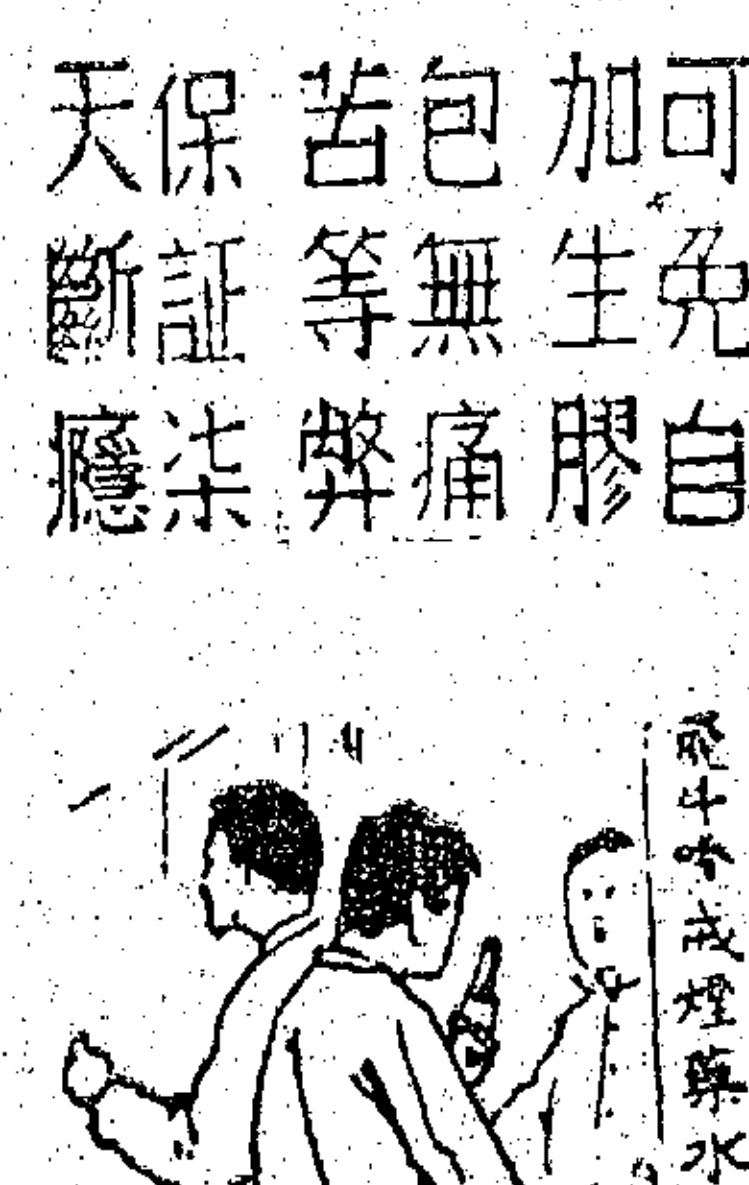 可免自
加生膠
包無痛
苦等弊
保証柒
天斷癮
飛牛嘜戒煙藥水